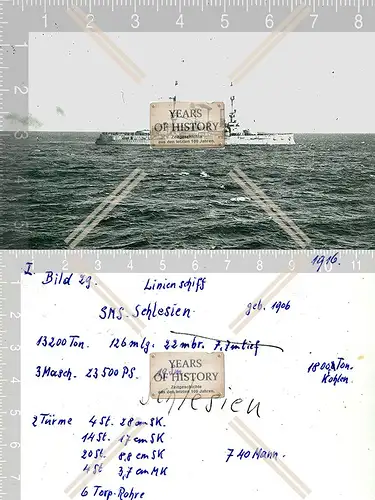 1 2 3 4 5 6 7 8
YEARS
OF HISTORY
Zeitgeschichte
aus den letzten 100 Jahren.
1 2 3 4 5 6 7 8 9 10 11
1916.
I
Bild 29.
Linienschiff
S.M.S. Schlesien
geb. 1906
13200 Ton. 126 m lg. 22 m br.
1800 Ton.
Kohlen
3 Masch. 23500 PS.
YEARS
OF HISTORY
Zeitgeschichte
aus den letzten 100 Jahren.
Schlesien
2 Türme 4 St. 28 cm SK.
14 St. 17 cm SK
20 St. 8,8 cm SK.
740 Mann.
4 St 3,7 cm MK
6 Torp-Rohre